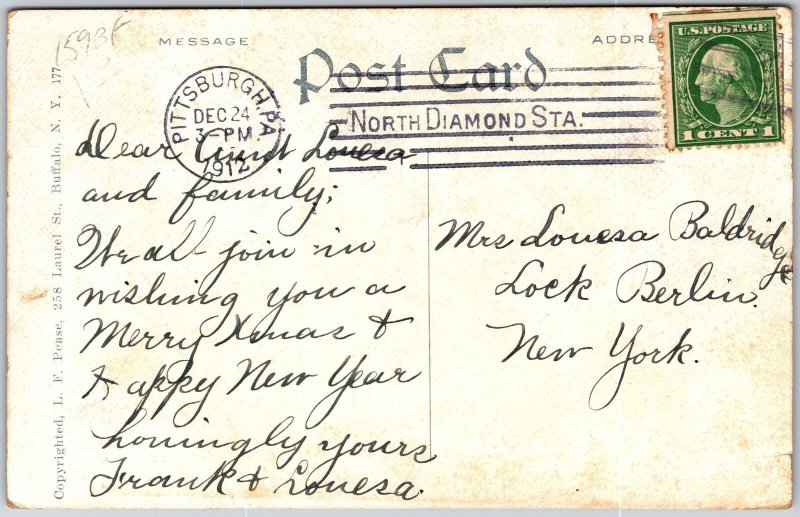 1593F
MESSAGE
ADDRE
Post Card
U.S. POSTAGE
1 CENT 1
PITTSBURGH, PA
DEC 24
3-PM
1912
NORTH DIAMOND STA.
Dear Aunt Louesa
and family;
We all join in
wishing you a
Merry Xmas &
Happy New Year
lovingly yours
Frank & Louesa.
Mrs Louesa Baldridge
Lock Berlin.
New York.
Copyrighted, L. F. Pease, 258 Laurel St., Buffalo, N. Y. 177